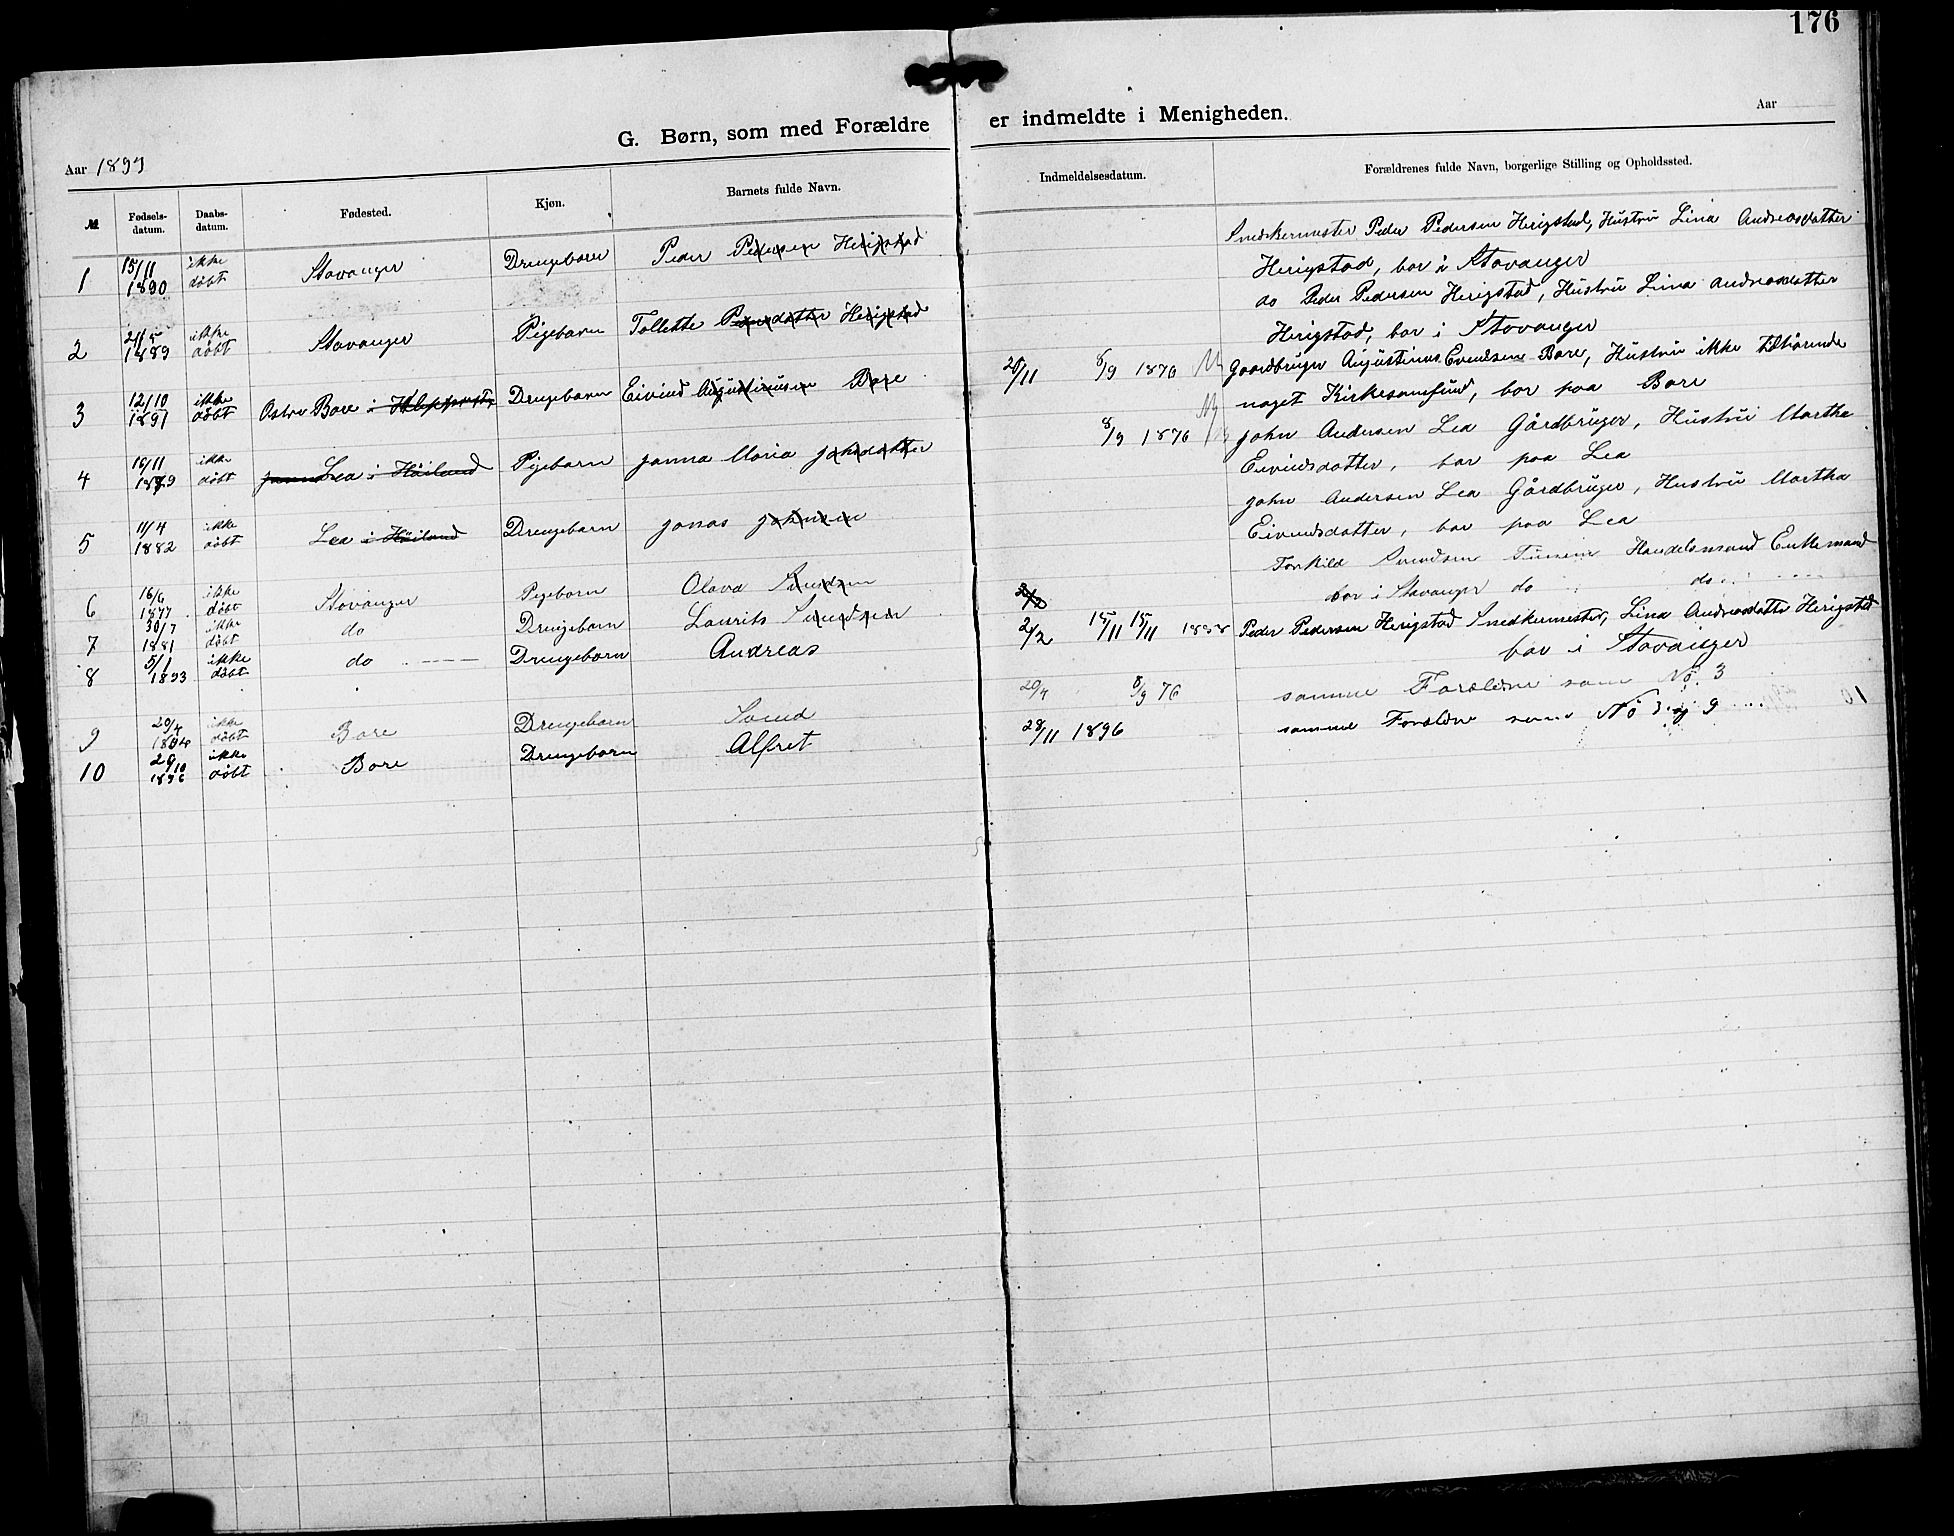 176
G. Børn, som med Forældre er indmeldte i Menigheden.
Aar
Aar 1897
№ Fødsels-datum. Daabs-datum. Fødested. Kjøn. Barnets fulde Navn. Indmeldelsesdatum. Forældrenes fulde Navn, borgerlige Stilling og Opholdssted.
1 15/11 1890 ikke døbt Stavanger Drengebarn Peder Pedersen Herigstad
Snedkermester Peder Pedersen Herigstad, Hustru Lina Andreasdatter
Herigstad, bor i Stavanger
2 21/5 1889 ikke døbt Stavanger Pigebarn Tollette Pedersdatter Herigstad
do Peder Pedersen Herigstad, Hustru Lina Andreasdatter
Herigstad, bor i Stavanger
3 12/10 1891 ikke døbt Østre Bore i Drengebarn Eivind Augustinusen Bore
8/9 1876 Gaardbruger Augustinus Eivendsen Bore, Hustru ikke tilhørende
noget Kirkesamfund, bor paa Bore
4 10/11 ikke døbt Lea i Høiland Pigebarn Janna Maria Johnsdatter
8/9 1876 John Andersen Lea Gårdbruger, Hustru Martha
Eivindsdatter, bor paa Lea
5 11/4 1882 ikke døbt Lea i Høiland Drengebarn Jonas Johnsen
John Andersen Lea Gårdbruger, Hustru Martha
Eivindsdatter, bor paa Lea
6 16/6 1877 ikke døbt Stavanger Pigebarn Olava
Torkild Svendsen Handelsmand Enkemand
bor i Stavanger
7 30/7 1881 ikke døbt do Drengebarn Laurits Svendsen
do do
8 5/1 1893 ikke døbt do Drengebarn Andreas
2/2 15/11 15/11 Peder Pedersen Herigstad Snedkermester, Lina Andreasdatter Herigstad
bor i Stavanger
9 20/4 1894 ikke døbt Bore Drengebarn Svend
20/4 8/9 76 samme Forældre som No. 3
10 29/10 1896 ikke døbt Bore Drengebarn Alfret
28/11 1896 samme Forældre som No 3 og 9